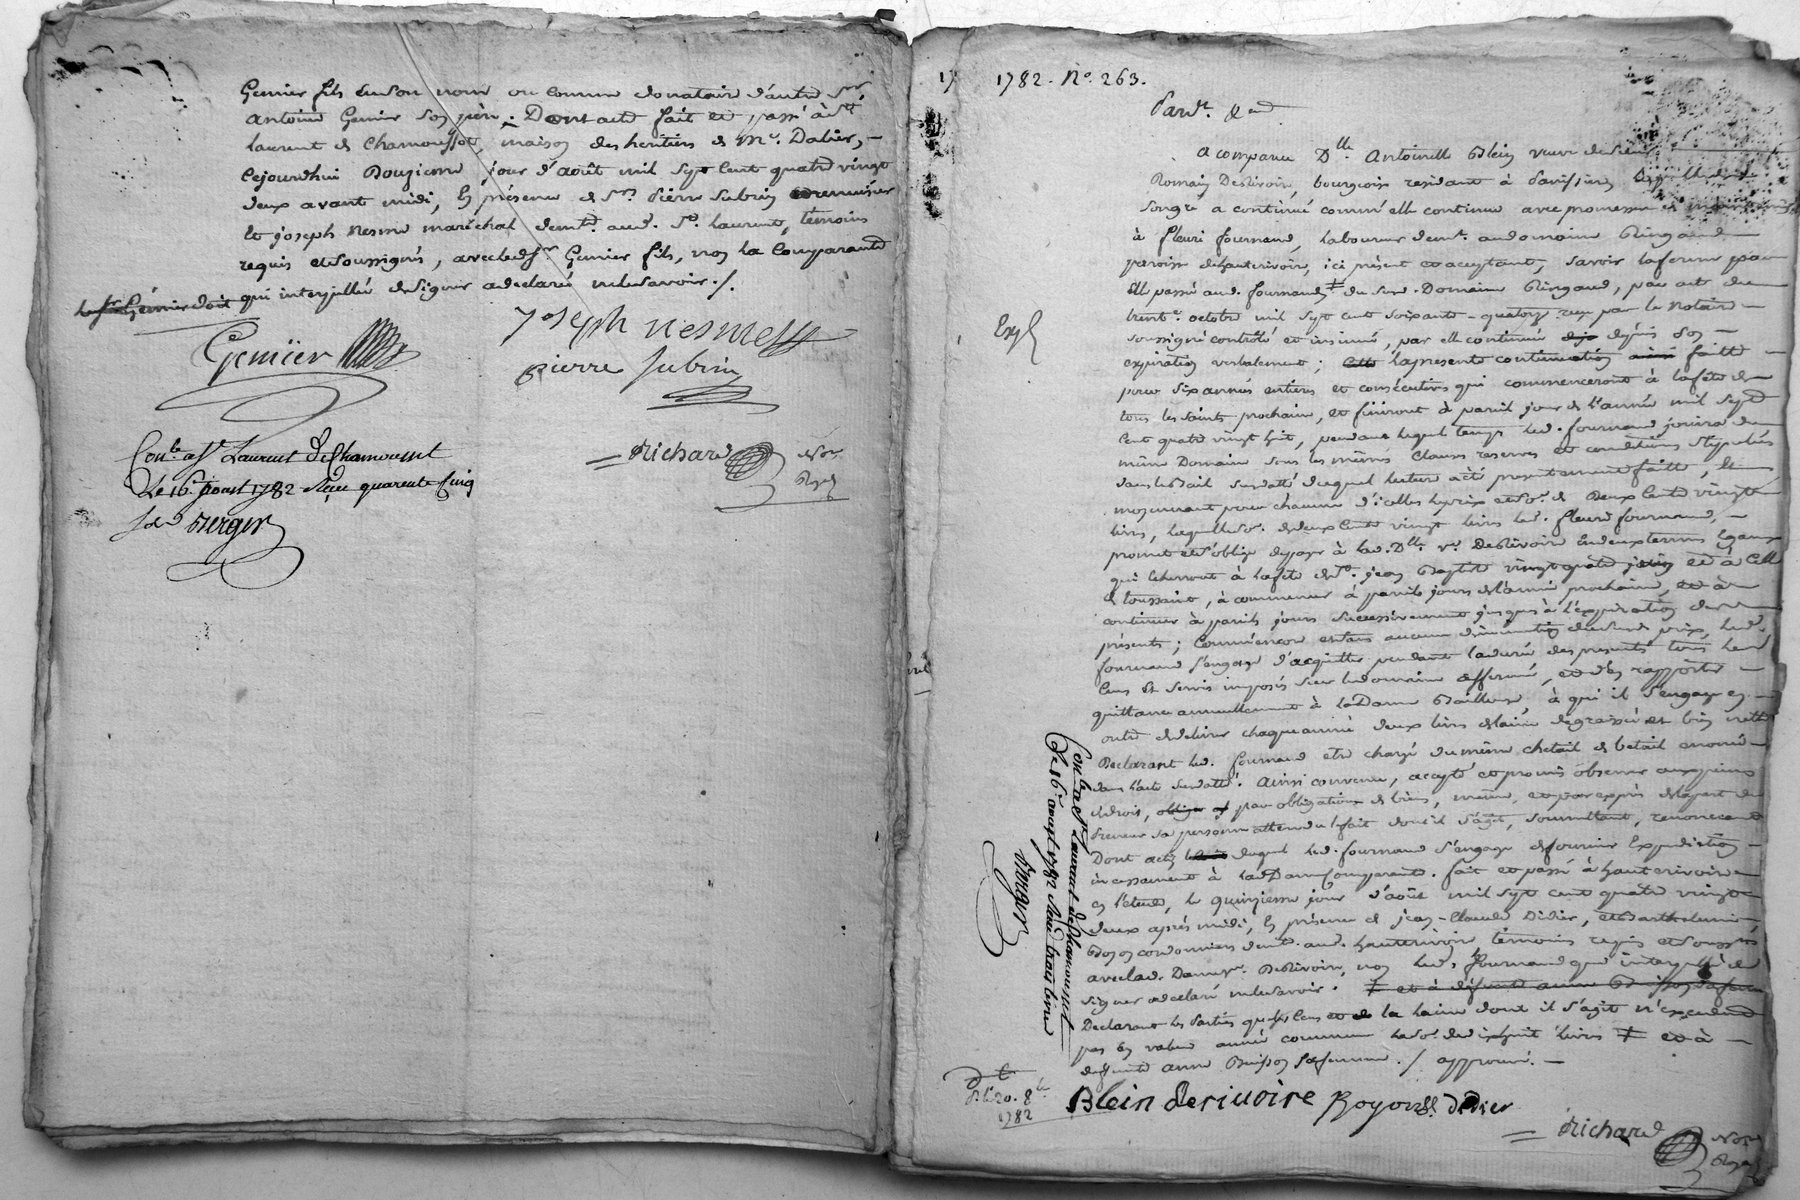 Gemier fils en son nom ou comme donataire d'autre Sr.
antoine Gemier son père. Dont acte fait et passé à St.
laurent de Chamousset, maison des heritiers de Mr. Dalier, –
cejourdhui Douzieme jour d'août mil sept cent quatre vingt
deux avant midi, en présence de Srs. Pierre Subrin menuisier
et joseph Nesme maréchal demts. aud. St. laurent, témoins
requis et soussignés, avec led. Sr. Gemier fils, non la Comparante
qui interpellée de signer a declaré ne le savoir ./.
Gemiier
Joseph nesme
pierre subrin
Con.le a St Laurent de Chamousset
Le 16. aoust 1782 Reçu quarente Cinq
Sols Berger
Richard Nore
Royal
1782. No. 263.
Pardt. &ca.
a comparu Dlle. Antoinette Blein veuve de Sieur
Romain Derivoire, bourgeoise residant à
a continué comm'elle continue avec promesse de
à fleuri fournand, laboureur demt. au domaine Ringaud
paroisse d'hauterivoire, ici présent et acceptant, savoir la ferme par
elle passé aud. fournand ‡ du susd. Domaine Ringaud, par acte du
trente octobre mil sept cent soixante-quatorze reçu par le notaire
soussigné contrôlé et insinué, par elle continuée depuis son
expiration verbalement ; la presente continuation faitte
pour six années entieres et consécutives qui commenceront à la fête de
tous les saints prochaine, et finiront à pareil jour de l'année mil sept
cent quatre vingt huit, pendant lequel temps led. fournand jouira du
même Domaine sous les mêmes clauses reserves et conditions stipulées
dans le Bail susdatté duquel lecture a été presentement faitte, et
moyennant pour chacune d'icelles le prix et so. de Deux Cents vingt
livres, laquelle so. de deux Cents vingt livres led. fleuri fournand, –
promet et s'oblige de payer à lad. Dlle. ve. Derivoire en deux termes égaux
qui écherront à la fête de St. jean Baptiste vingt quatre juin et à celle
de toussaint, à commencer à pareils jours de l'année prochaine, et à
continuer à pareils jours successivement jusques à l'expiration des
présentes ; comm'encore et sans aucune diminution du susd. prix, led.
fournand s'engage d'acquitter pendant la durée des presentes tous les
cens et servis imposés sur le domaine affermé, et d'en rapporter
quittance annuellement à la Dame Bailleuse, à qui il s'engage en
outre de delivrer chaque année deux livres de laine degraissée et bien nette
Declarant led. fournand etre chargé du même cheptail de betail enoncé
dans l'acte susdatté. Ainsi convenu, accepté et promis observer aux peines
de droit, par obligation de biens, même, et par exprès de la part du
Preneur sa personne attendu le fait dont il s'agit, soumettant, renonceant
Dont acte duquel led. fournand s'engage de fournir Expedition
incessamment à lad. Dame Comparante. fait et passé à hauterivoire
en l'etude, le quinzieme jour d'août mil sept cent quatre vingt
deux après midi, en présence de jean-Claude Didier, et Barthelemi
Boyon cordonniers demts. aud. hauterivoire, témoins requis et soussignés
avec lad. Dame ve. Derivoire, non led. fournand qui interpellé de
signer a declaré ne le savoir. ‡ et à défunte anne Buisson sa femme
Declarant les Parties que les cens et la laine dont il s'agit n'excedent
pas en valeur année commune la so. de dixhuit livres ‡ et à
defunte anne Buisson sa femme ./. approuvé. –
Blein derivoire Boyon Didier
Richard Nore
Royal
Expé
Con.le a St Laurant de Chamousset
Le 16. aoust 1782 Reçu trois livres
Berger
20. 8bre
1782